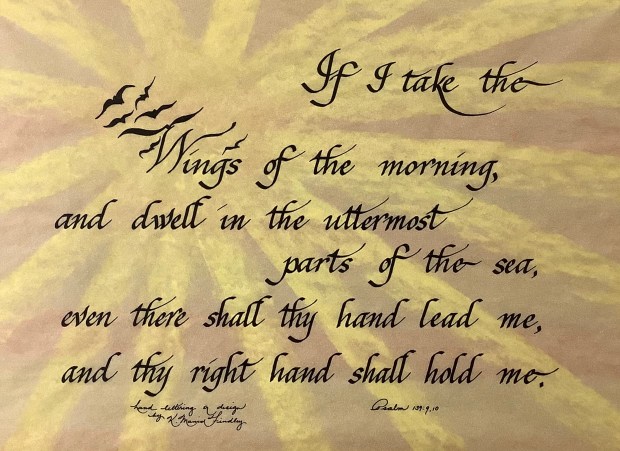 If I take the
Wings of the morning,
and dwell in the uttermost
parts of the sea,
even there shall thy hand lead me,
and thy right hand shall hold me.
hand lettering & design
by K Findley
Psalm 139:9,10